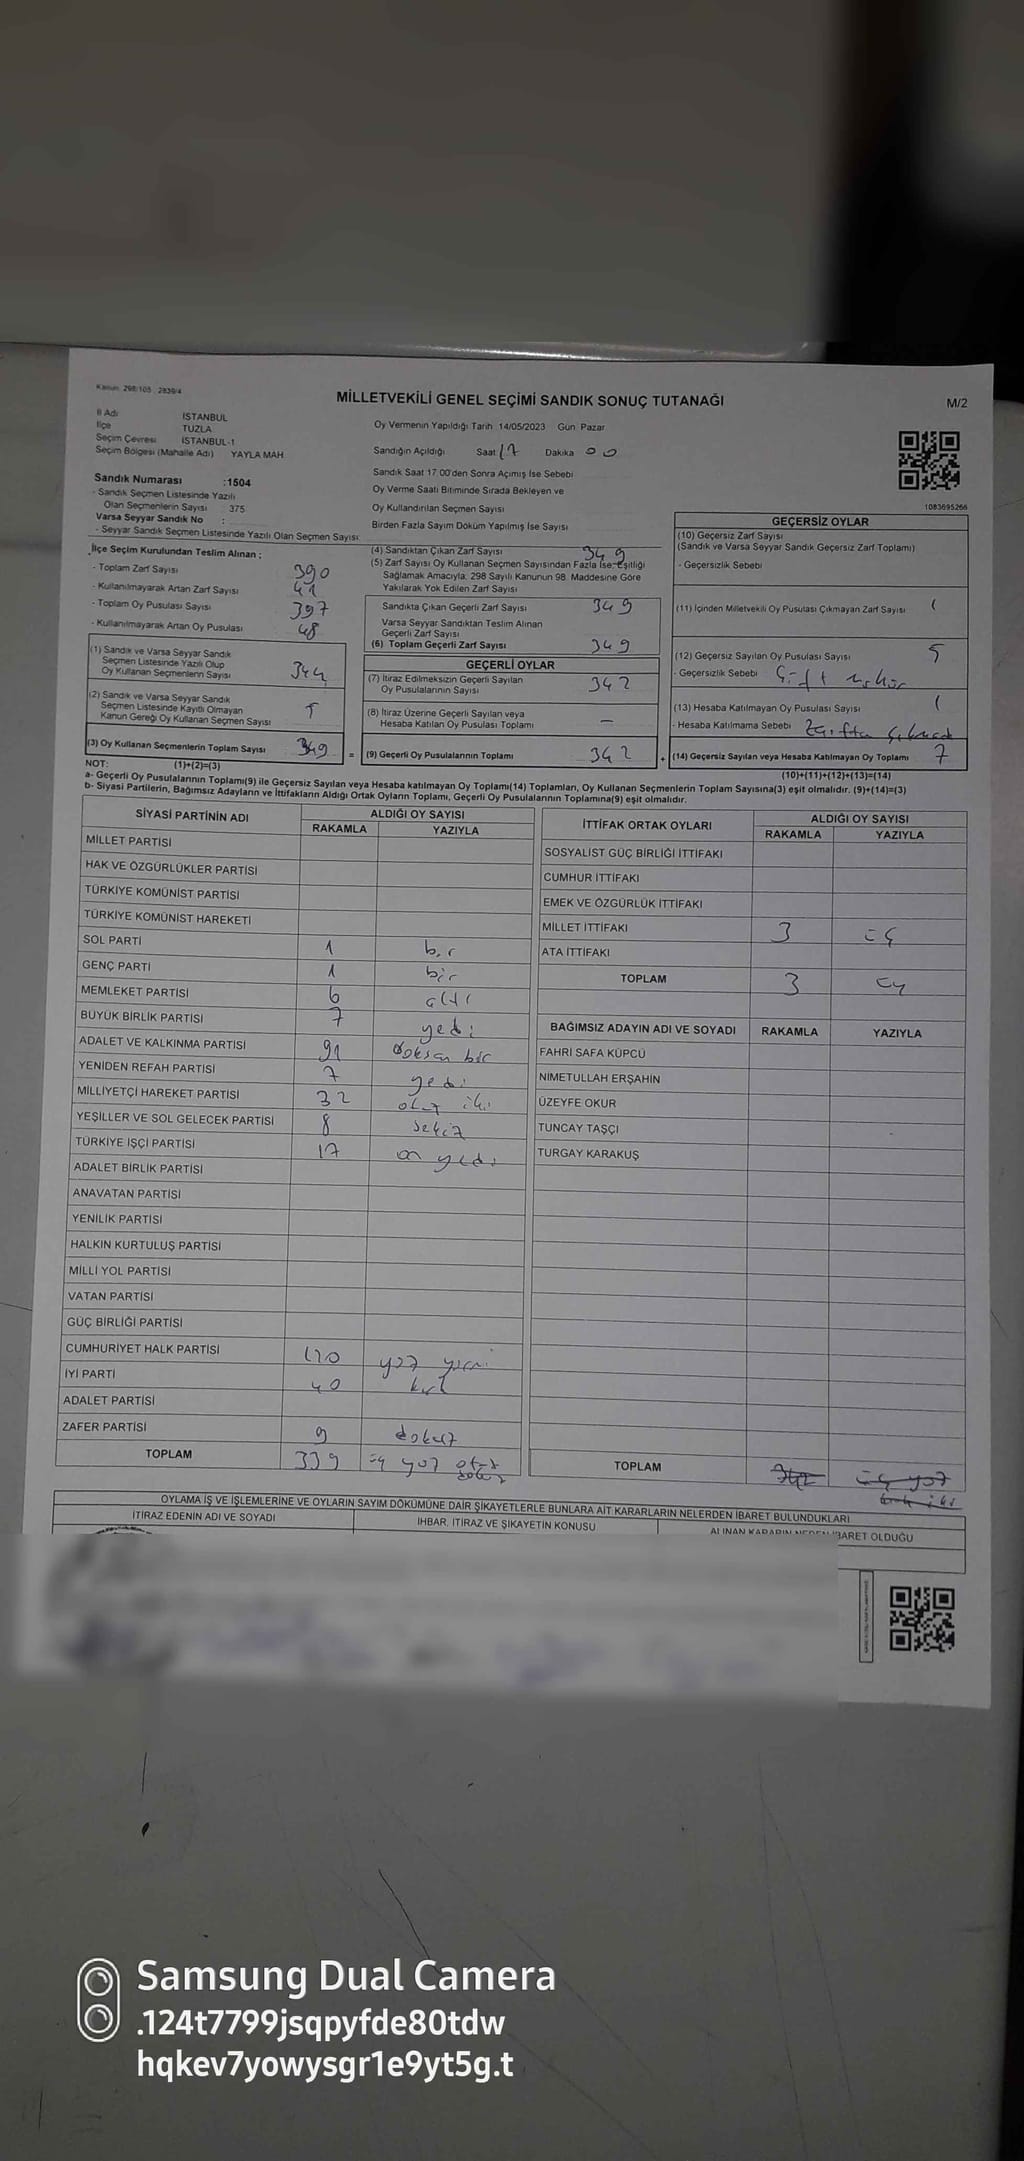 Kanun: 298/105 : 2839/4
MİLLETVEKİLİ GENEL SEÇİMİ SANDIK SONUÇ TUTANAĞI
M/2
İl Adı İSTANBUL
İlçe TUZLA
Seçim Çevresi İSTANBUL-1
Seçim Bölgesi (Mahalle Adı) YAYLA MAH.
Sandık Numarası :1504
- Sandık Seçmen Listesinde Yazılı
Olan Seçmenlerin Sayısı : 375
Varsa Seyyar Sandık No :
- Seyyar Sandık Seçmen Listesinde Yazılı Olan Seçmen Sayısı:
Oy Vermenin Yapıldığı Tarih 14/05/2023 Gün: Pazar
Sandığın Açıldığı Saat 17 Dakika 00
Sandık Saat 17:00'den Sonra Açımış İse Sebebi
Oy Verme Saati Bitiminde Sırada Bekleyen ve
Oy Kullandırılan Seçmen Sayısı
Birden Fazla Sayım Döküm Yapılmış İse Sayısı
1083695266
İlçe Seçim Kurulundan Teslim Alınan ;
- Toplam Zarf Sayısı 390
- Kullanılmayarak Artan Zarf Sayısı 41
- Toplam Oy Pusulası Sayısı 397
- Kullanılmayarak Artan Oy Pusulası 48
(1) Sandık ve Varsa Seyyar Sandık
Seçmen Listesinde Yazılı Olup
Oy Kullanan Seçmenlerin Sayısı 344
(2) Sandık ve Varsa Seyyar Sandık
Seçmen Listesinde Kayıtlı Olmayan
Kanun Gereği Oy Kullanan Seçmen Sayısı 5
(3) Oy Kullanan Seçmenlerin Toplam Sayısı 349
(4) Sandıktan Çıkan Zarf Sayısı 349
(5) Zarf Sayısı Oy Kullanan Seçmen Sayısından Fazla İse, Eşitliği
Sağlamak Amacıyla, 298 Sayılı Kanunun 98. Maddesine Göre
Yakılarak Yok Edilen Zarf Sayısı
Sandıkta Çıkan Geçerli Zarf Sayısı 349
Varsa Seyyar Sandıktan Teslim Alınan
Geçerli Zarf Sayısı
(6) Toplam Geçerli Zarf Sayısı 349
GEÇERLİ OYLAR
(7) İtiraz Edilmeksizin Geçerli Sayılan
Oy Pusulalarının Sayısı 342
(8) İtiraz Üzerine Geçerli Sayılan veya
Hesaba Katılan Oy Pusulası Toplamı —
= (9) Geçerli Oy Pusulalarının Toplamı 342
GEÇERSİZ OYLAR
(10) Geçersiz Zarf Sayısı
(Sandık ve Varsa Seyyar Sandık Geçersiz Zarf Toplamı)
- Geçersizlik Sebebi
(11) İçinden Milletvekili Oy Pusulası Çıkmayan Zarf Sayısı 1
(12) Geçersiz Sayılan Oy Pusulası Sayısı 5
- Geçersizlik Sebebi Çift mühür
(13) Hesaba Katılmayan Oy Pusulası Sayısı 1
- Hesaba Katılmama Sebebi Zarftan
+ (14) Geçersiz Sayılan veya Hesaba Katılmayan Oy Toplamı 7
NOT: (1)+(2)=(3)
(10)+(11)+(12)+(13)=(14)
a- Geçerli Oy Pusulalarının Toplamı(9) ile Geçersiz Sayılan veya Hesaba katılmayan Oy Toplamı(14) Toplamları, Oy Kullanan Seçmenlerin Toplam Sayısına(3) eşit olmalıdır. (9)+(14)=(3)
b- Siyasi Partilerin, Bağımsız Adayların ve İttifakların Aldığı Ortak Oyların Toplamı, Geçerli Oy Pusulalarının Toplamına(9) eşit olmalıdır.
SİYASİ PARTİNİN ADI ALDIĞI OY SAYISI
RAKAMLA YAZIYLA
MİLLET PARTİSİ
HAK VE ÖZGÜRLÜKLER PARTİSİ
TÜRKİYE KOMÜNİST PARTİSİ
TÜRKİYE KOMÜNİST HAREKETİ
SOL PARTİ 1 bir
GENÇ PARTİ 1 bir
MEMLEKET PARTİSİ 6 altı
BÜYÜK BİRLİK PARTİSİ 7 yedi
ADALET VE KALKINMA PARTİSİ 91 doksan bir
YENİDEN REFAH PARTİSİ 7 yedi
MİLLİYETÇİ HAREKET PARTİSİ 32 otuz iki
YEŞİLLER VE SOL GELECEK PARTİSİ 8 sekiz
TÜRKİYE İŞÇİ PARTİSİ 17 on yedi
ADALET BİRLİK PARTİSİ
ANAVATAN PARTİSİ
YENİLİK PARTİSİ
HALKIN KURTULUŞ PARTİSİ
MİLLİ YOL PARTİSİ
VATAN PARTİSİ
GÜÇ BİRLİĞİ PARTİSİ
CUMHURİYET HALK PARTİSİ 120 yüz yirmi
İYİ PARTİ 40 kırk
ADALET PARTİSİ
ZAFER PARTİSİ 9 dokuz
TOPLAM 339 üç yüz otuz dokuz
İTTİFAK ORTAK OYLARI ALDIĞI OY SAYISI
RAKAMLA YAZIYLA
SOSYALİST GÜÇ BİRLİĞİ İTTİFAKI
CUMHUR İTTİFAKI
EMEK VE ÖZGÜRLÜK İTTİFAKI
MİLLET İTTİFAKI 3 üç
ATA İTTİFAKI
TOPLAM 3 üç
BAĞIMSIZ ADAYIN ADI VE SOYADI RAKAMLA YAZIYLA
FAHRİ SAFA KÜPCÜ
NİMETULLAH ERŞAHİN
ÜZEYFE OKUR
TUNCAY TAŞÇI
TURGAY KARAKUŞ
TOPLAM 342 üç yüz kırk iki
OYLAMA İŞ VE İŞLEMLERİNE VE OYLARIN SAYIM DÖKÜMÜNE DAİR ŞİKAYETLERLE BUNLARA AİT KARARLARIN NELERDEN İBARET BULUNDUKLARI
İTİRAZ EDENİN ADI VE SOYADI İHBAR, İTİRAZ VE ŞİKAYETİN KONUSU ALINAN KARARIN NEDEN İBARET OLDUĞU
Samsung Dual Camera
.124t7799jsqpyfde80tdw
hqkev7yowysgr1e9yt5g.t